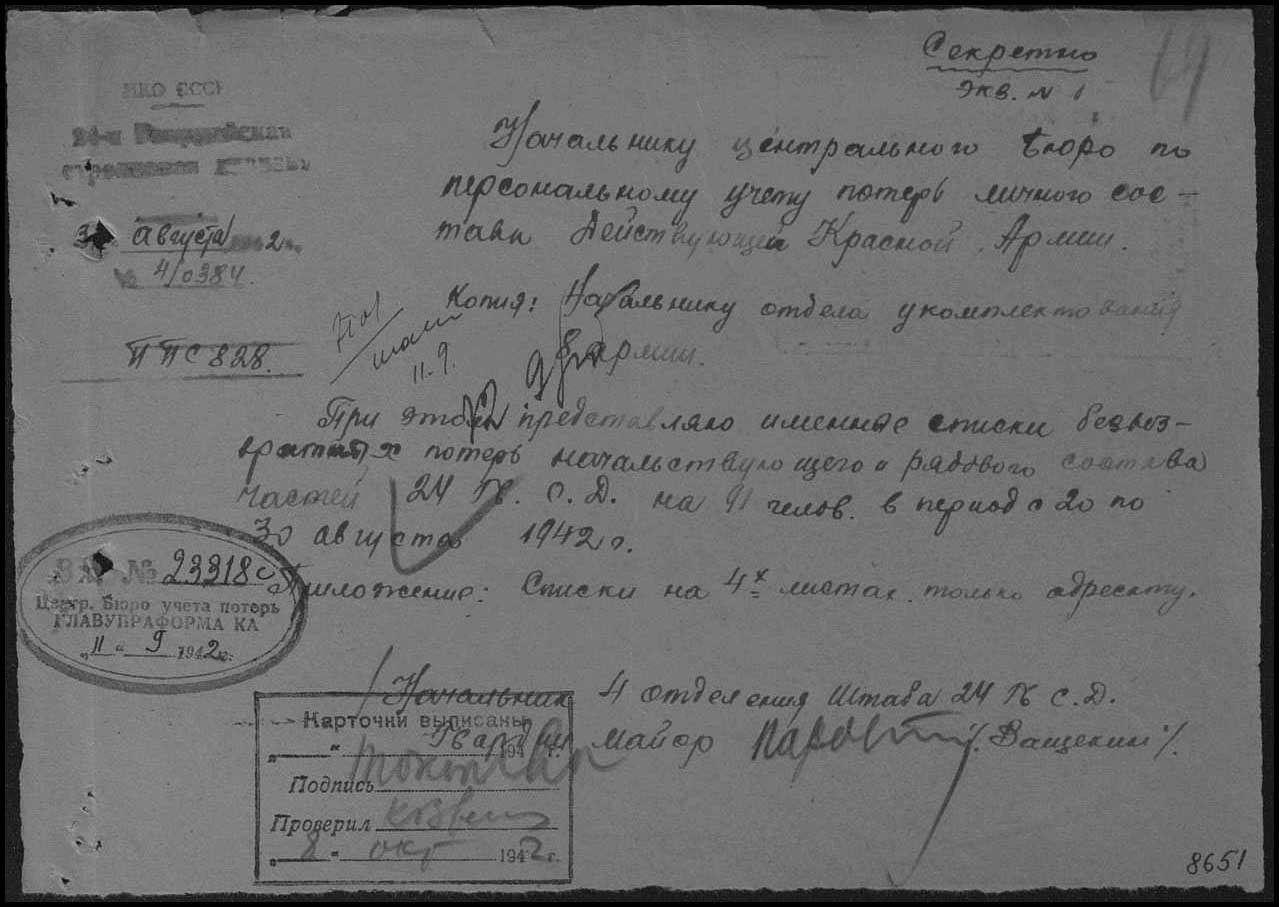 Секретно
Экв. № 1
69
НКО СССР
24-я Гвардейская
стрелковая дивизия
августа 1942 г.
№ 4/0384.
ППС 828.
Начальнику центрального бюро по
персональному учету потерь личного сос-
тава Действующей Красной Армии.
Копия: Начальнику отдела укомплектования
8 армии.
11.9.
При этом представляю именные списки безвоз-
вратных потерь начальствующего и рядового состава
частей 24 Гв. С. Д. на 91 челов. в период с 20 по
30 августа 1942 г.
Приложение: Списки на 4х листах только адресату.
Вх. № 23318с
Центр. Бюро учета потерь
ГЛАВУПРАФОРМА КА
„11“ 9 1942 г.
Начальник 4 отделения Штаба 24 Гв С. Д.
Гвардии майор /Ващенкин/.
Карточки выписаны
„ “ 194 г.
Подпись
Проверил
„8“ окт 1942 г.
8651